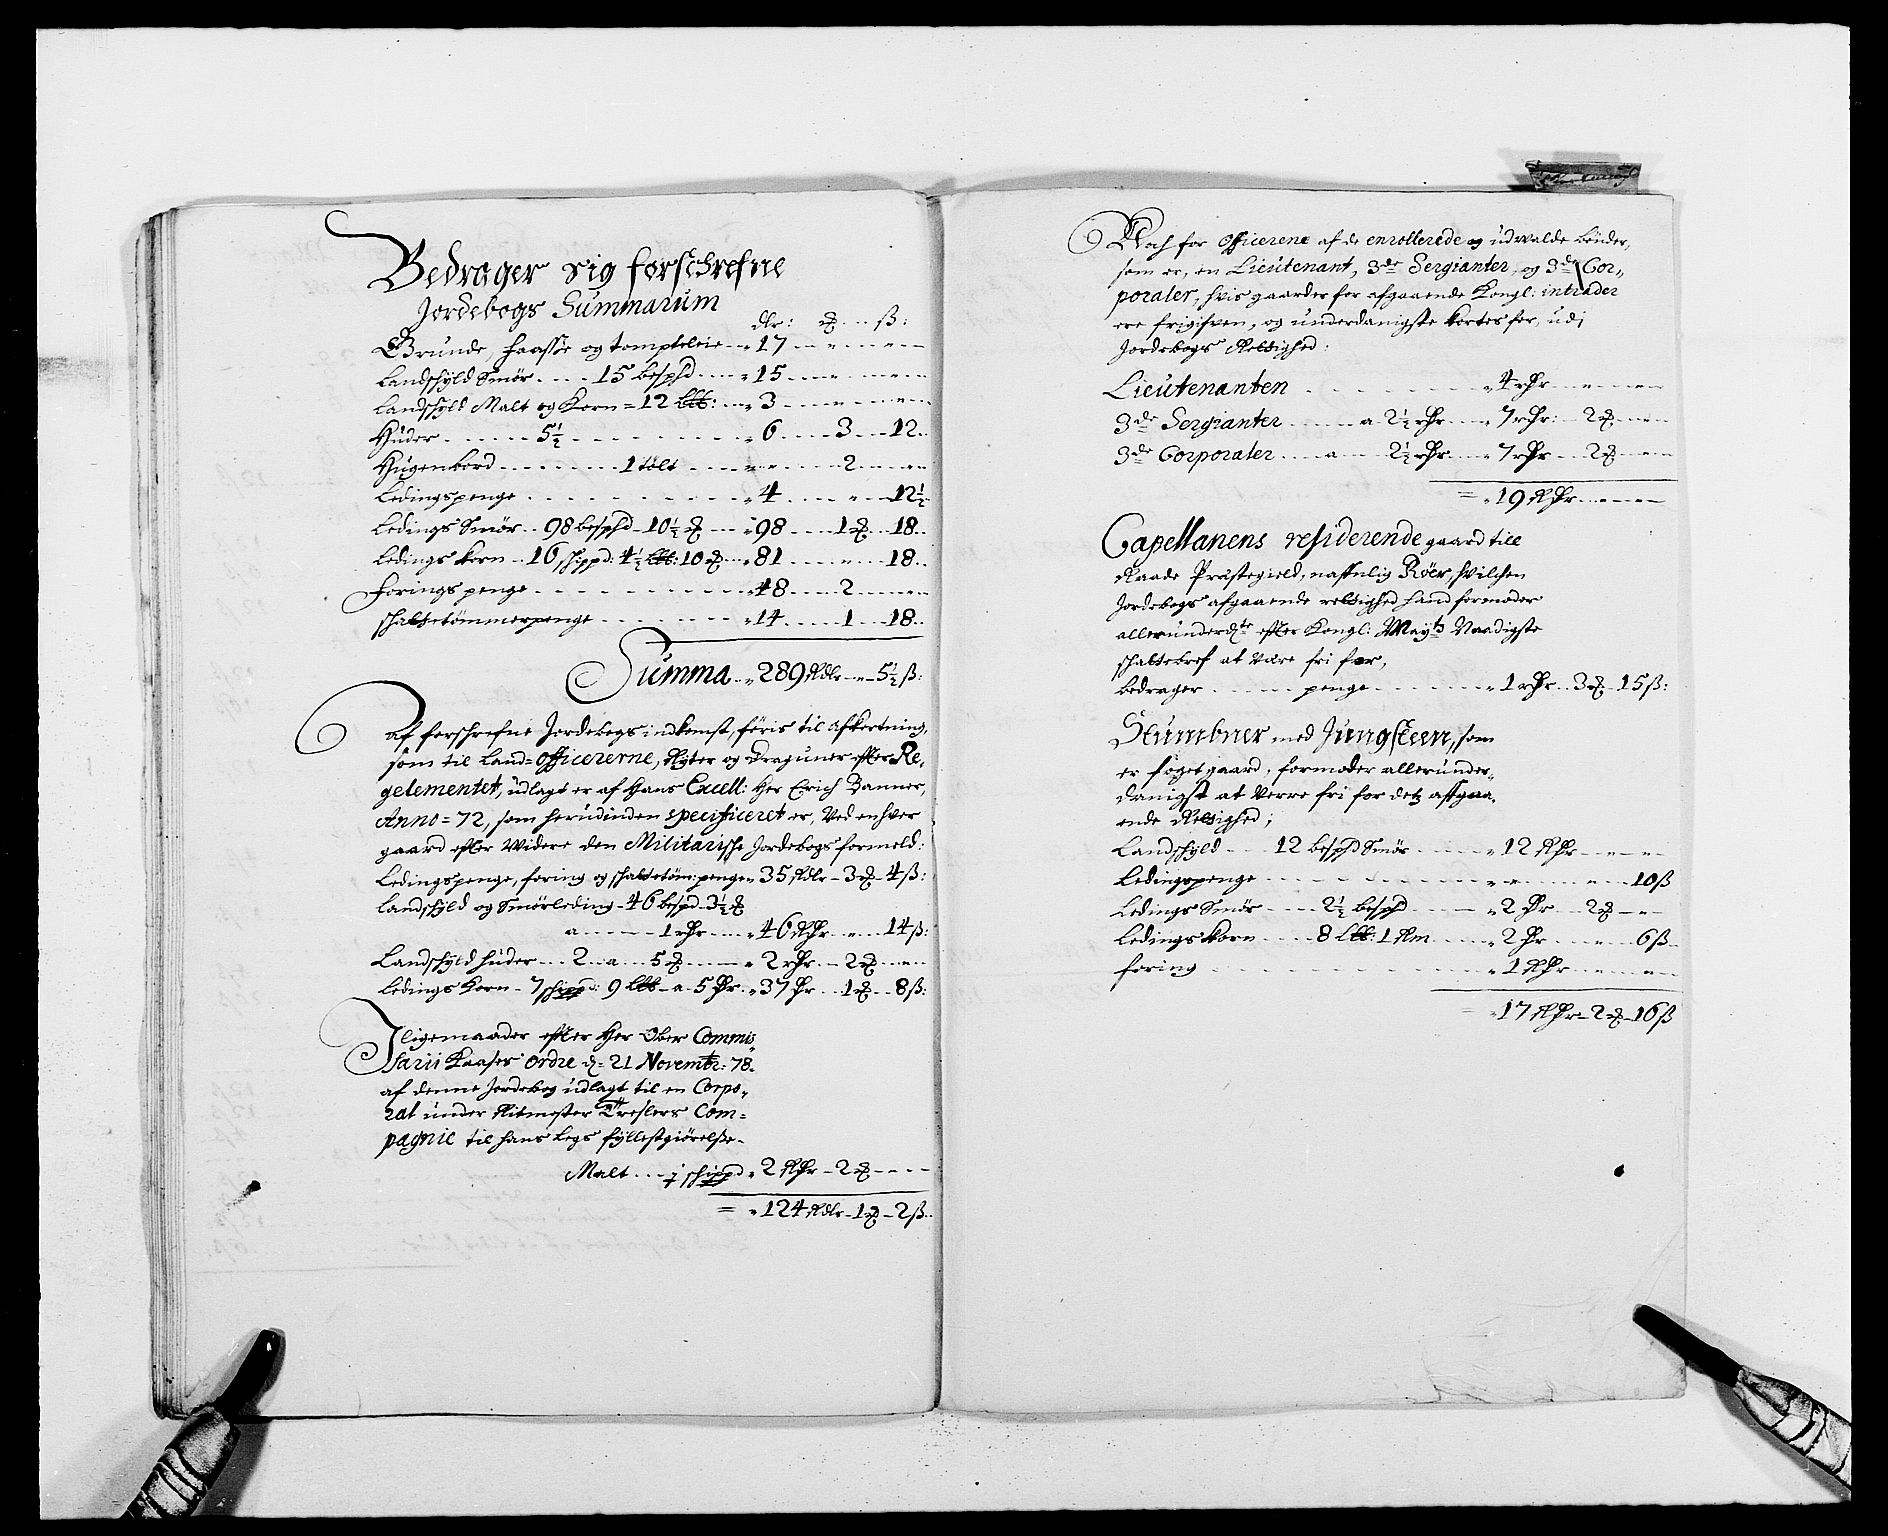 Bedrager sig forschrefne
Jordebogs Summarum
dlr: ℥ ß:
Grunde Haasse og tompteleie 17
Landschyld Smør 15 bespd 15
Landschyld Malt og Korn = 12 3
Huder 5½ 6 3 12
Hugenbord 1 tolt 2
Ledingspenge 4 12½
Ledings Smør 98 bespd 10½ 98 1 18
Ledings korn 16 schippd: 4½ 10 81 18
Forings penge 48 2
schattetømmerpenge 14 1 18
Summa 289 Rdlr 5½ ß:
af forschrefne Jordebogs indkomst, føris til afkortning,
som til Land=officererne, Ryter og Draguner efter Re,
gelementet, udlagt er af Hans Excell: Her Erich Banner,
Anno = 72, som herudinden specificeret er, Ved enhver
gaard efter Widere den Militarische Jordebogs formeld:
Ledingspenge, foring og schattetøm: penge 35 Rdlr 3 4 ß:
Landschyld og Smørleding 46 bespd 3½
a 1 46 14 ß:
Landschyld huder 2 a 5 2 2
Ledings Korn 7 schippd: 9 a 5 37 1 8 ß:
Jligemaader efter Her Ober Commis
sarii Kaases ordre d: 21 Novembr: 78
af denne Jordebog udlagt til en Corpo,
ral under Ritmester Treslers Com=
pagnie til hans Legs fyllestgiørelße
Malt schippd 2 2
= 124 Rdlr 1 2 ß
Noch for officerene af de enrollerede og udwalde bønder,
som er, en Lieutenant, 3de Sergianter, og 3de Cor,,
poraler, hvis gaarder for afgaaende Kongl: intrader
ere frigifven, og underdanigste kortes for, udj
Jordebogs Rettighed:
Lieutenanten 4
3de Sergianter a 2½ 7 2
3de Corporaler a 2½ 7 2
= 19
Capellanens residerende gaard till
Raade Præstegield, naffnlig Röer, hvilchen
Jordebogs afgaaende rettighed hand formoder
allerunderdste efter Kongl: Mayts Naadigste
schattebref at være fri for,
bedrager penge 1 3 15 ß:
Stumbner med Jungsteen, som
er foget gaard, formoder allerunder,,
danigst at Verre fri for detz affgaa,
ende Rettighed;
Landschyld 12 bespd Smør 12
Ledingspenge 10 ß
Ledings Smør 2½ bespd 2 2
Ledings korn 8 1 2 6 ß
foring 1
17 2 16 ß